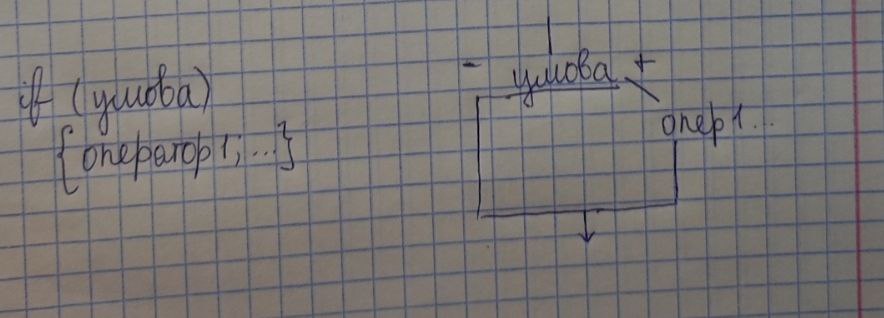 if (умова)
{оператор1; ...}
- умова +
опер1...